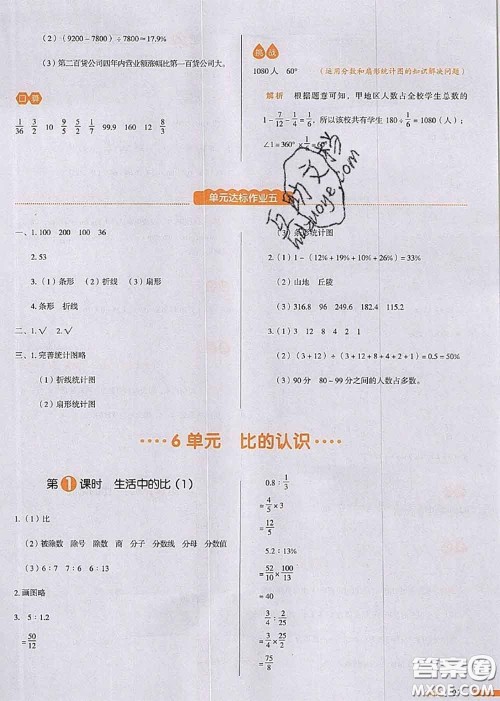 （2）（9200－7800）÷7800≈17.9%
（3）第二百货公司四年内营业额涨幅比第一百货公司大。
口算
1/36 3/2 10 9/5 9/2 99 160 12 8/3
挑战
1080人 60°
（运用分数和扇形统计图的知识解决问题）
解析 根据题意可知，甲地区人数占全校学生总数的
1－7/12－1/4=1/6，所以该校共有学生180÷1/6=1080（人）；
∠1=360°×1/6=
单元达标作业五
一、1. 100 200 100 36
2. 53
3.（1）条形 （2）折线 （3）扇形
4. 条形 折线
二、1. √ 2. √
三、1. 完善统计图略
（1）折线统计图
（2）扇形统计图
（3）条形统计图
2.（1）1－（12%＋19%＋10%＋26%）=33%
（2）山地 丘陵
（3）316.8 96 249.6 182.4 115.2
3.（1）3 12 8 4 2 1
（2）（3＋12）÷（3＋12＋8＋4＋2＋1）=0.5=50%
（3）90分 80－99分之间的人数占多数。
6单元 比的认识
第1课时 生活中的比（1）
1.（1）比
（2）被除数 除号 除数 商 分子 分数线 分母 分数值
（3）6∶7 7∶6 6∶13
2. 画图略
3. 5∶1.2
=50/12
0.8∶1/3
=4/5×3
=12/5
5.2∶13%
=52/10×100/13
=40
3/4∶2/25
=3/4×25/2
=75/8
互助文档
hzhuoye.com
答案圈
MXQE.COM